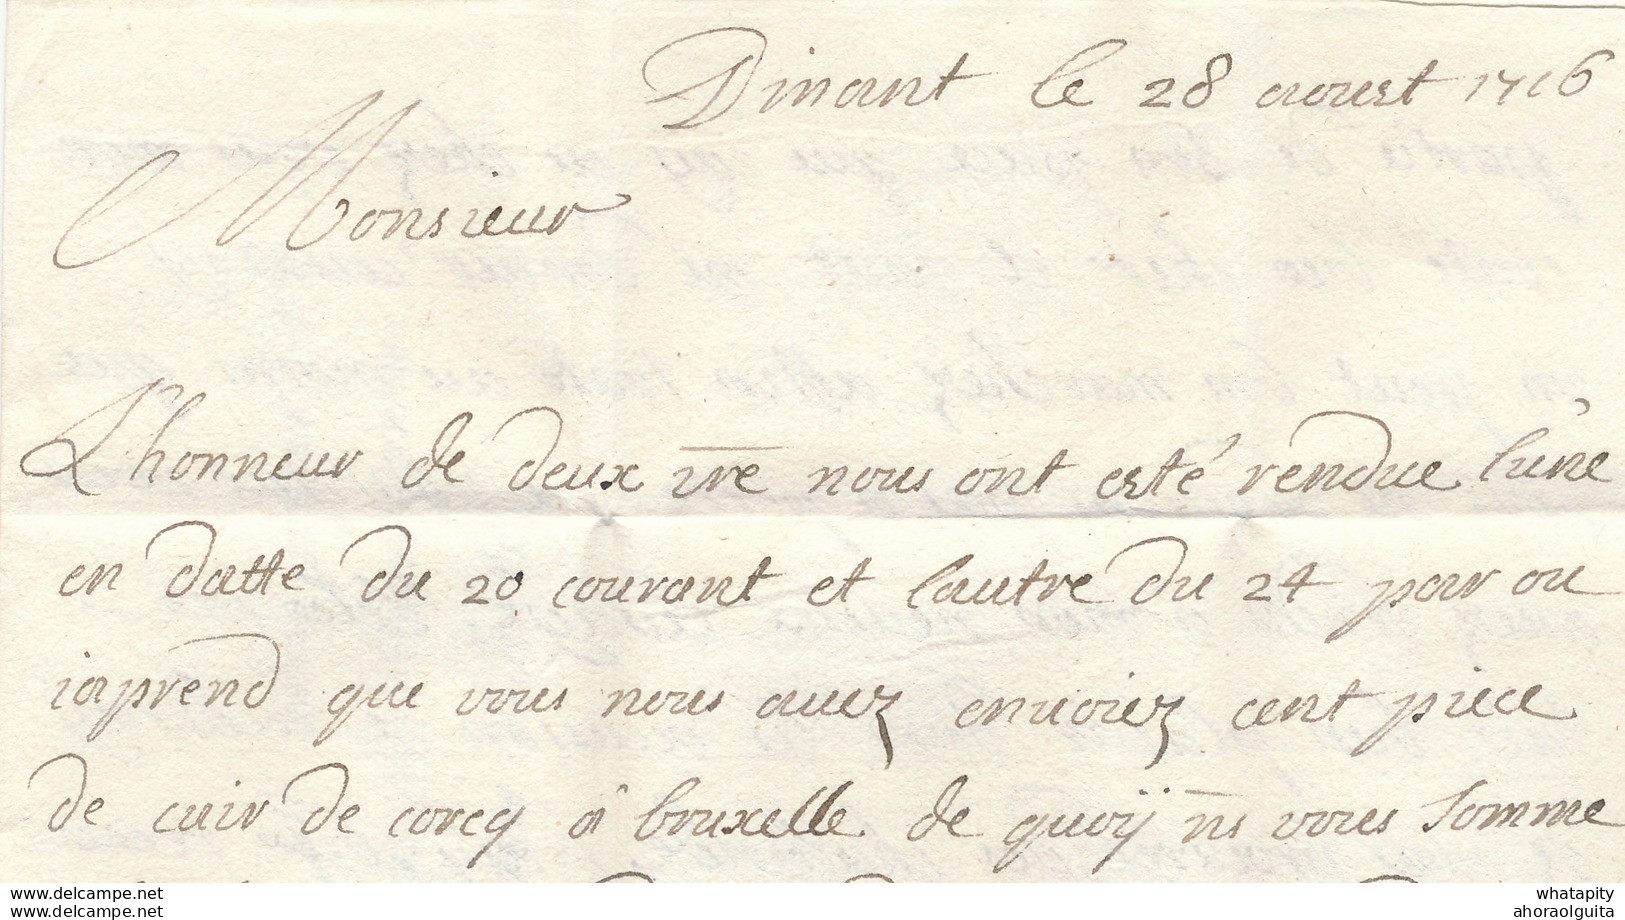 Dinant le 28 aoust 1716
Monsieur
L'honneur de deux vre nous ont esté rendue lune
en datte du 20 courant et lautre du 24 par ou
iaprend que vous nous auez enuoiez cent piece
de cuir de corcq a bruxelle de quoÿ ns vous somme
www.delcampe.net
www.delcampe.net
whatapity
ahoraolguita